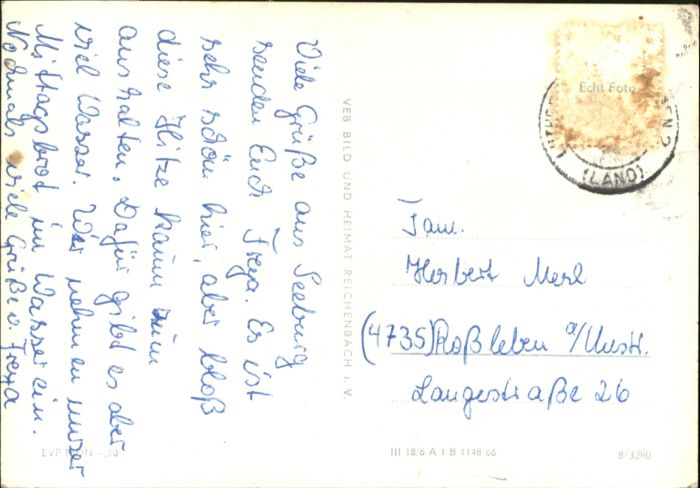 Viele Grüße aus Seeburg
senden Euch Freya. Es ist
sehr schön hier, aber bloß
diese Hitze kaum zum
aushalten. Dafür gibt es aber
viel Wasser. Wir nehmen unser
Mittagsbrot im Wasser ein.
Nochmals viele Grüße v. Freya
VEB BILD UND HEIMAT REICHENBACH I. V.
Echt Foto
EN 2
(LAND)
Fam.
Herbert Merl
(4735) Roßleben a/Unstr.
Langestraße 26
III 18/6 A 1 B 1148 66
8/3280